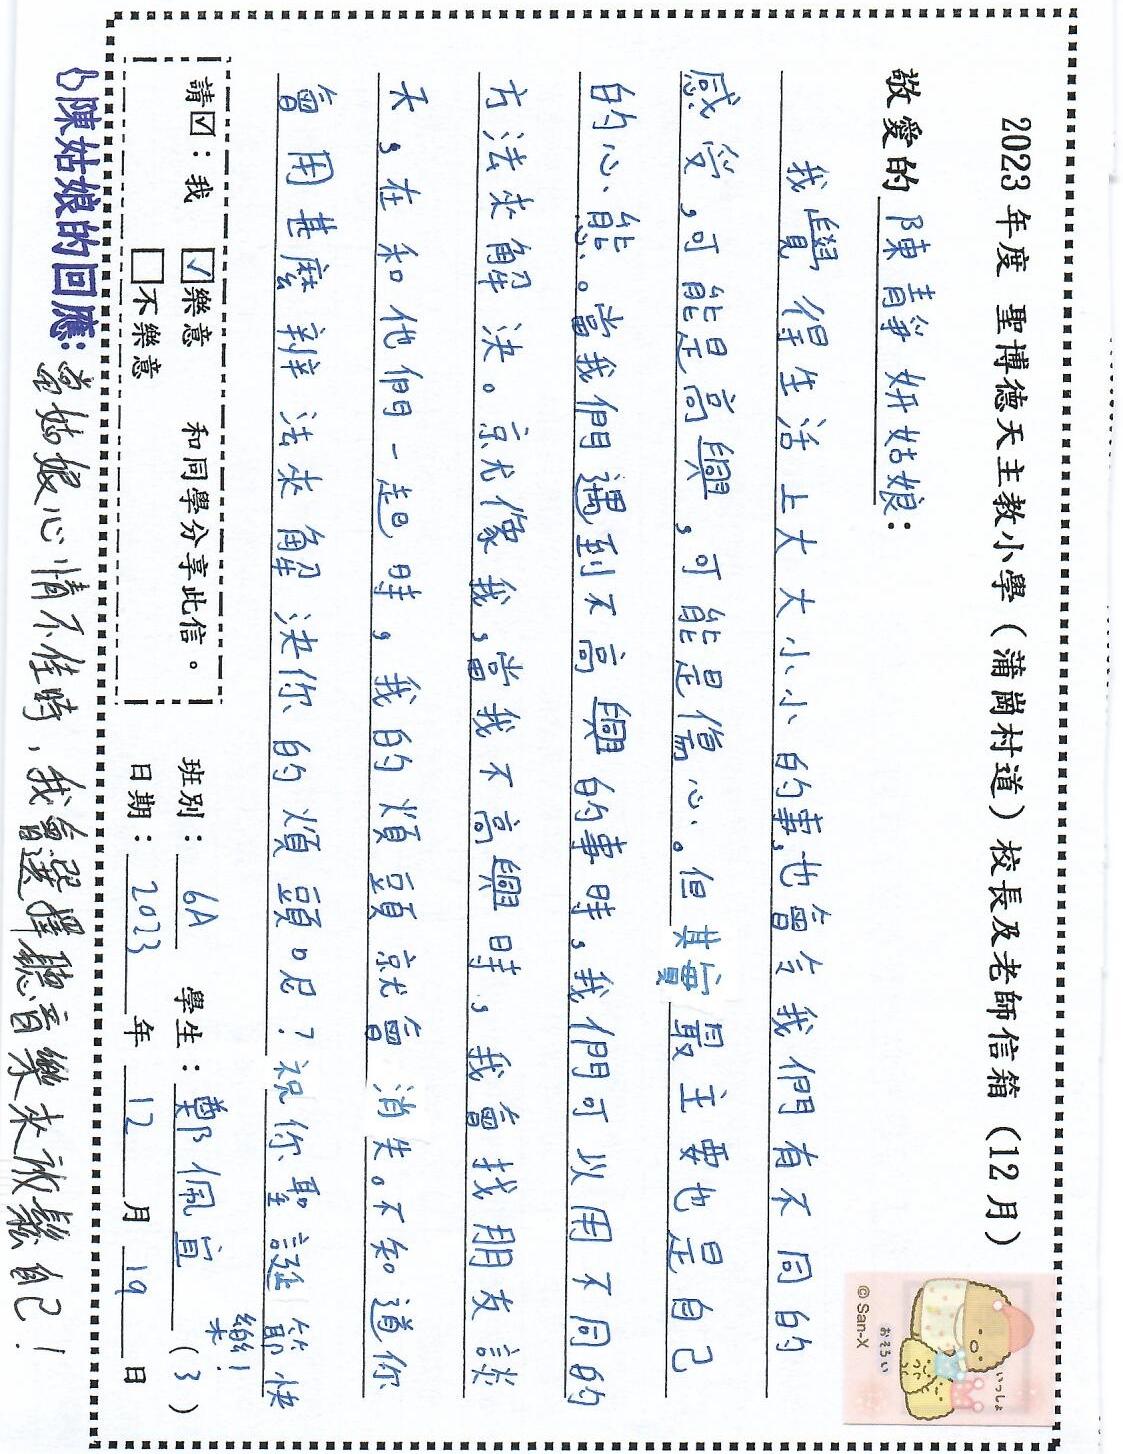 2023年度 聖博德天主教小學（蒲崗村道）校長及老師信箱（12月）
敬愛的 陳靜妍姑娘：
我覺得生活上大大小小的事,也會令我們有不同的
感受,可能是高興,可能是傷心。但其實最主要也是自己
的心態。當我們遇到不高興的事時,我們可以用不同的
方法來解決。京尤像我,當我不高興時,我會找朋友談
天,在和他們一起時,我的煩頭就會消失。不知道你
會用甚麼辨法來解決你的煩頭呢?祝你聖誕節快
樂!
© San-X
おそろい
いっしょ
請☑：我 ☑樂意 和同學分享此信。
□不樂意
班別： 6A 學生： 鄭佩宜 (3)
日期： 2023 年 12 月 19 日
陳姑娘的回應:當姑娘心情不佳時,我會選擇聽音樂來放鬆自己!